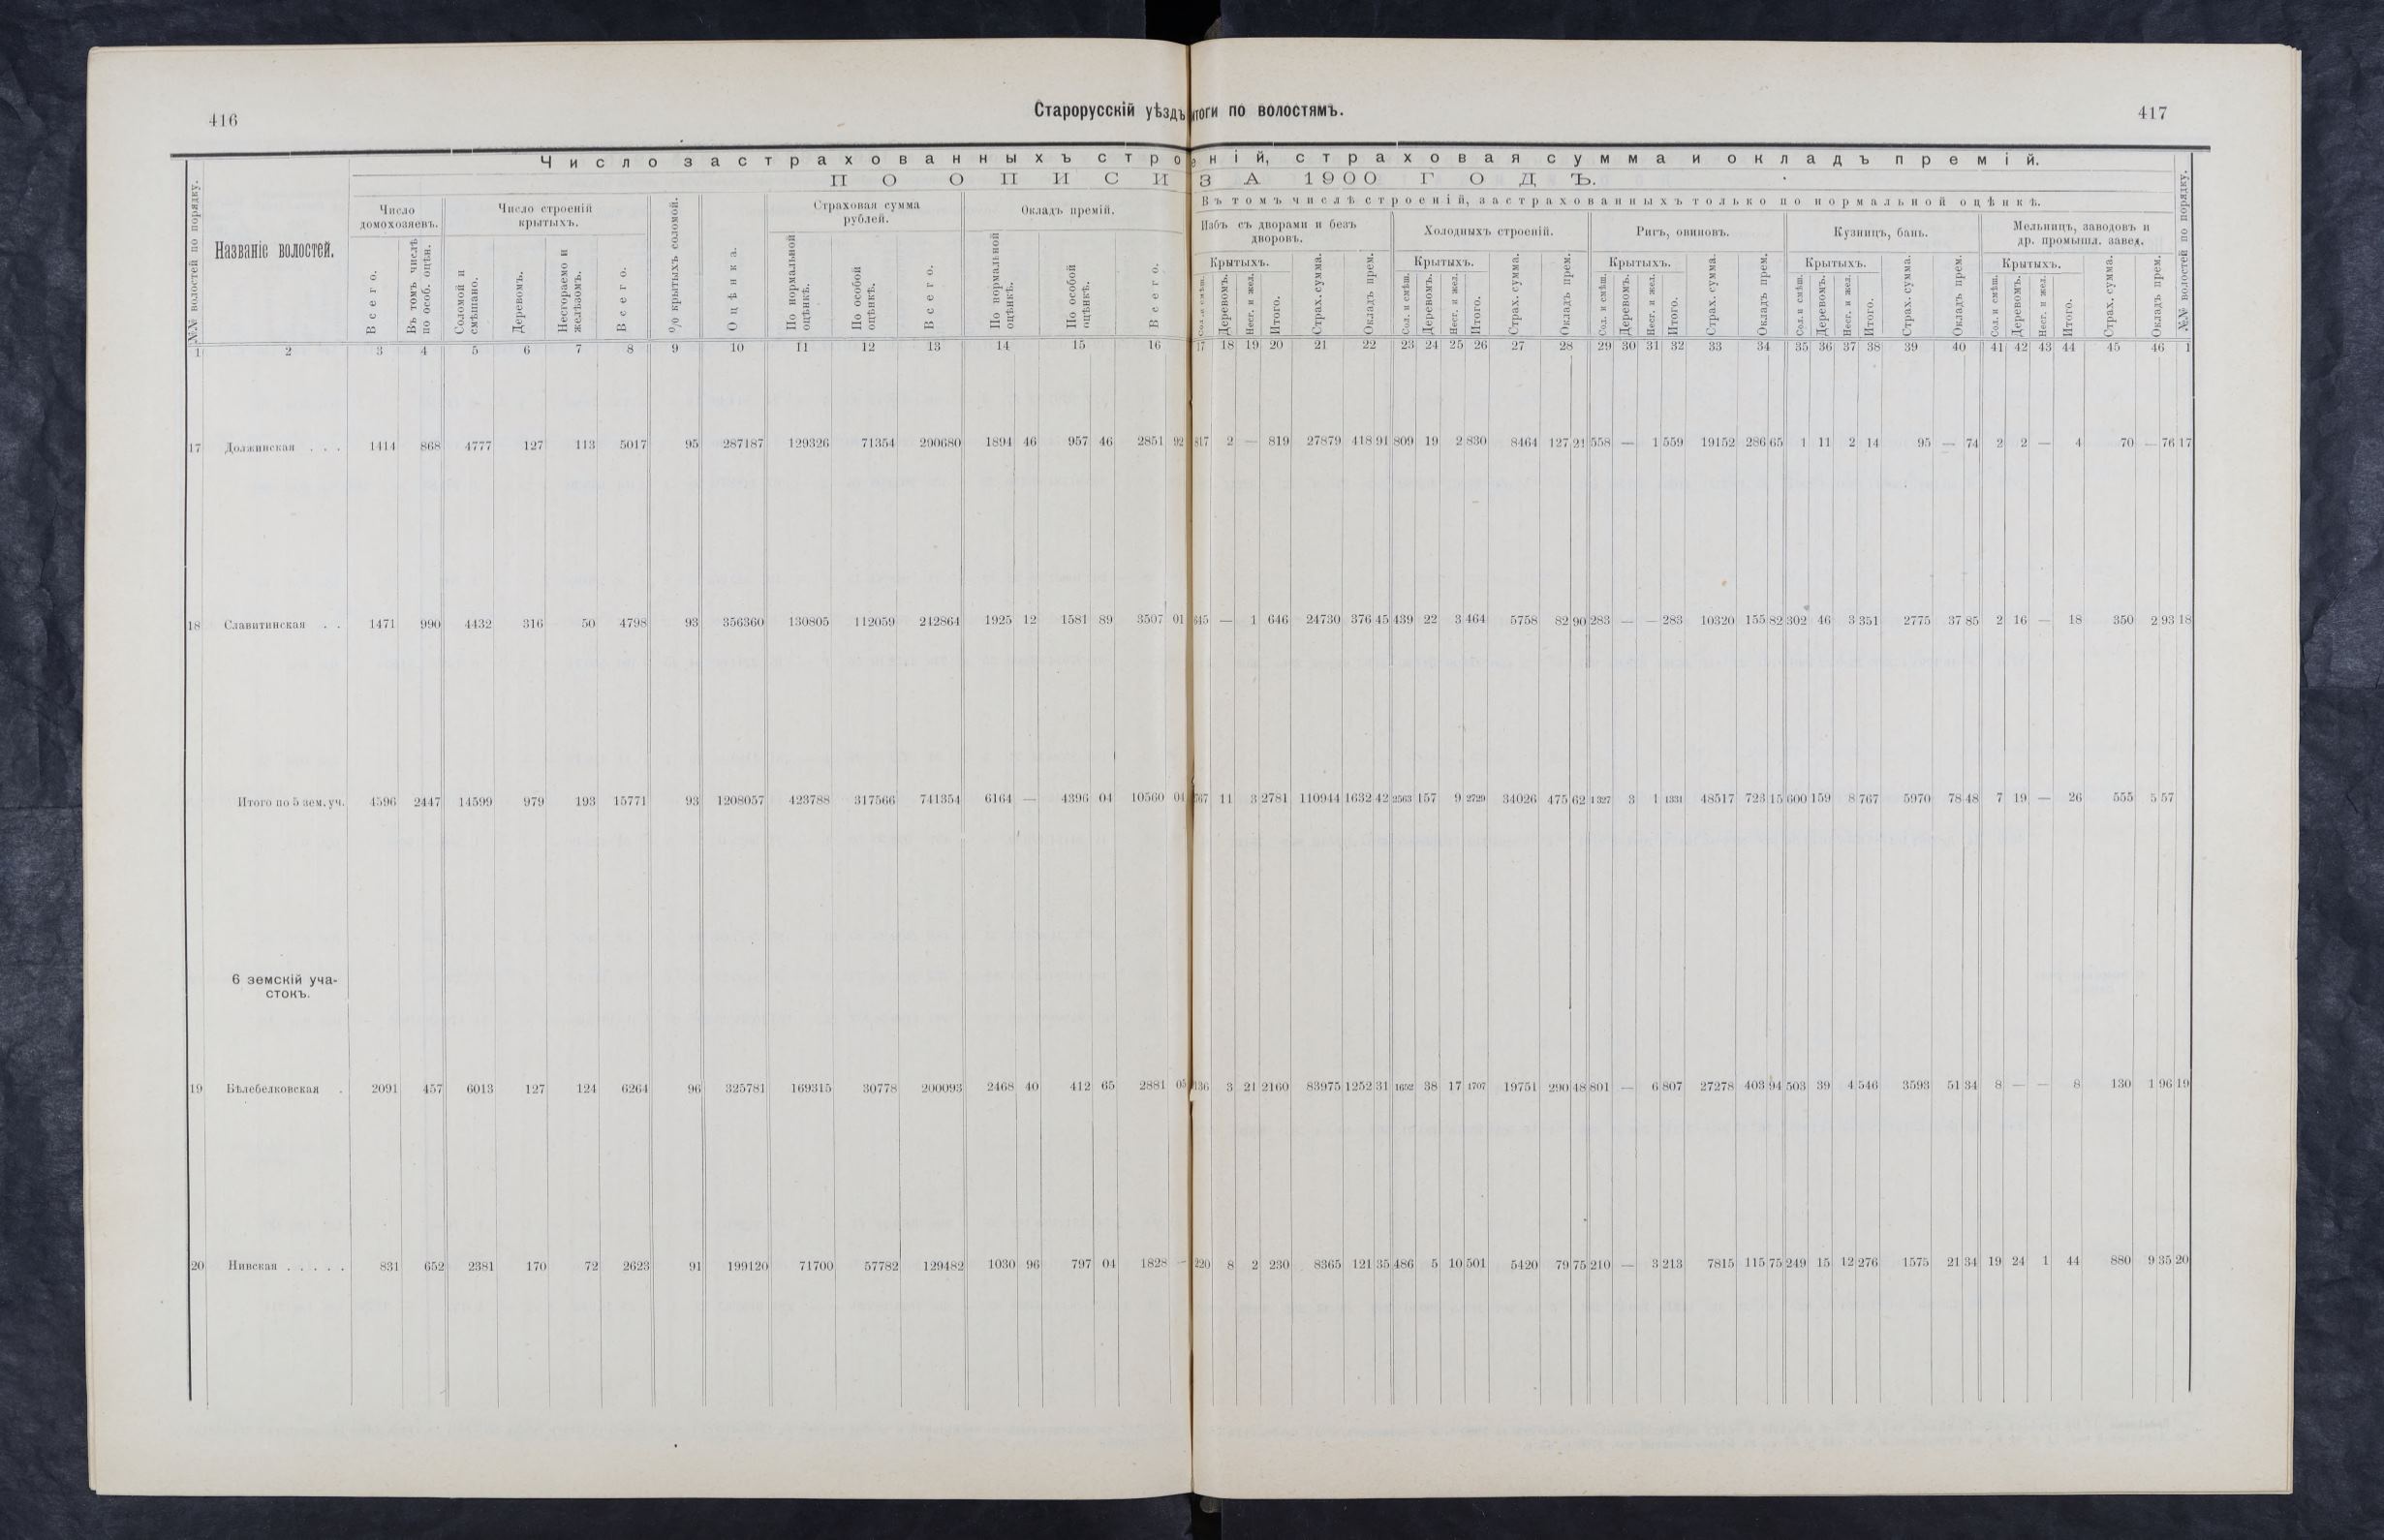 416
Старорусскій уѣздъ
итоги по волостямъ.
417
Число застрахованныхъ строеній, страховая сумма и окладъ премій.
ПО ОПИСИ ЗА 1900 ГОДЪ.
Въ томъ числѣ строеній, застрахованныхъ только по нормальной оцѣнкѣ.
№№ волостей по порядку.
Названіе волостей.
Число домохозяевъ.
Всего.
Въ томъ числѣ по особ. оцѣн.
Число строеній крытыхъ.
Соломой и смѣшано.
Деревомъ.
Несгораемо и желѣзомъ.
Всего.
% крытыхъ соломой.
Оцѣнка.
Страховая сумма рублей.
По нормальной оцѣнкѣ.
По особой оцѣнкѣ.
Всего.
Окладъ премій.
По нормальной оцѣнкѣ.
По особой оцѣнкѣ.
Всего.
Избъ съ дворами и безъ дворовъ.
Крытыхъ.
Сол. и смѣш.
Деревомъ.
Несг. и жел.
Итого.
Страх. сумма.
Окладъ прем.
Холодныхъ строеній.
Крытыхъ.
Сол. и смѣш.
Деревомъ.
Несг. и жел.
Итого.
Страх. сумма.
Окладъ прем.
Ригъ, овиновъ.
Крытыхъ.
Сол. и смѣш.
Деревомъ.
Несг. и жел.
Итого.
Страх. сумма.
Окладъ прем.
Кузницъ, бань.
Крытыхъ.
Сол. и смѣш.
Деревомъ.
Несг. и жел.
Итого.
Страх. сумма.
Окладъ прем.
Мельницъ, заводовъ и др. промышл. завед.
Крытыхъ.
Сол. и смѣш.
Деревомъ.
Несг. и жел.
Итого.
Страх. сумма.
Окладъ прем.
№№ волостей по порядку.
1 2 3 4 5 6 7 8 9 10 11 12 13 14 15 16 17 18 19 20 21 22 23 24 25 26 27 28 29 30 31 32 33 34 35 36 37 38 39 40 41 42 43 44 45 46 1
17 Должинская . . . 1414 868 4777 127 113 5017 95 287187 129326 71354 200680 1894 46 957 46 2851 92 817 2 — 819 27879 418 91 809 19 2 830 8464 127 21 558 — 1 559 19152 286 65 1 11 2 14 95 — 74 2 2 — 4 70 — 76 17
18 Славитинская . . 1471 990 4432 316 50 4798 93 356360 130805 112059 242864 1925 12 1581 89 3507 01 645 — 1 646 24730 376 45 439 22 3 464 5758 82 90 283 — — 283 10320 155 82 302 46 3 351 2775 37 85 2 16 — 18 350 2 93 18
Итого по 5 зем. уч. 4596 2447 14599 979 193 15771 93 1208057 423788 317566 741354 6164 — 4396 04 10560 04 11 3 2781 110944 1632 42 2563 157 9 2729 34026 475 62 1327 3 1 1331 48517 723 15 600 159 8 767 5970 78 48 7 19 — 26 555 5 57
6 земскій уча-
стокъ.
19 Бѣлебелковская . 2091 457 6013 127 124 6264 96 325781 169315 30778 200093 2468 40 412 65 2881 05 3 21 2160 83975 1252 31 1652 38 17 1707 19751 290 48 801 — 6 807 27278 403 94 503 39 4 546 3593 51 34 8 — — 8 130 1 96 19
20 Нивская . . . . . 831 652 2381 170 72 2623 91 199120 71700 57782 129482 1030 96 797 04 1828 — 220 8 2 230 8365 121 35 486 5 10 501 5420 79 75 210 — 3 213 7815 115 75 249 15 12 276 1575 21 34 19 24 1 44 880 9 35 20